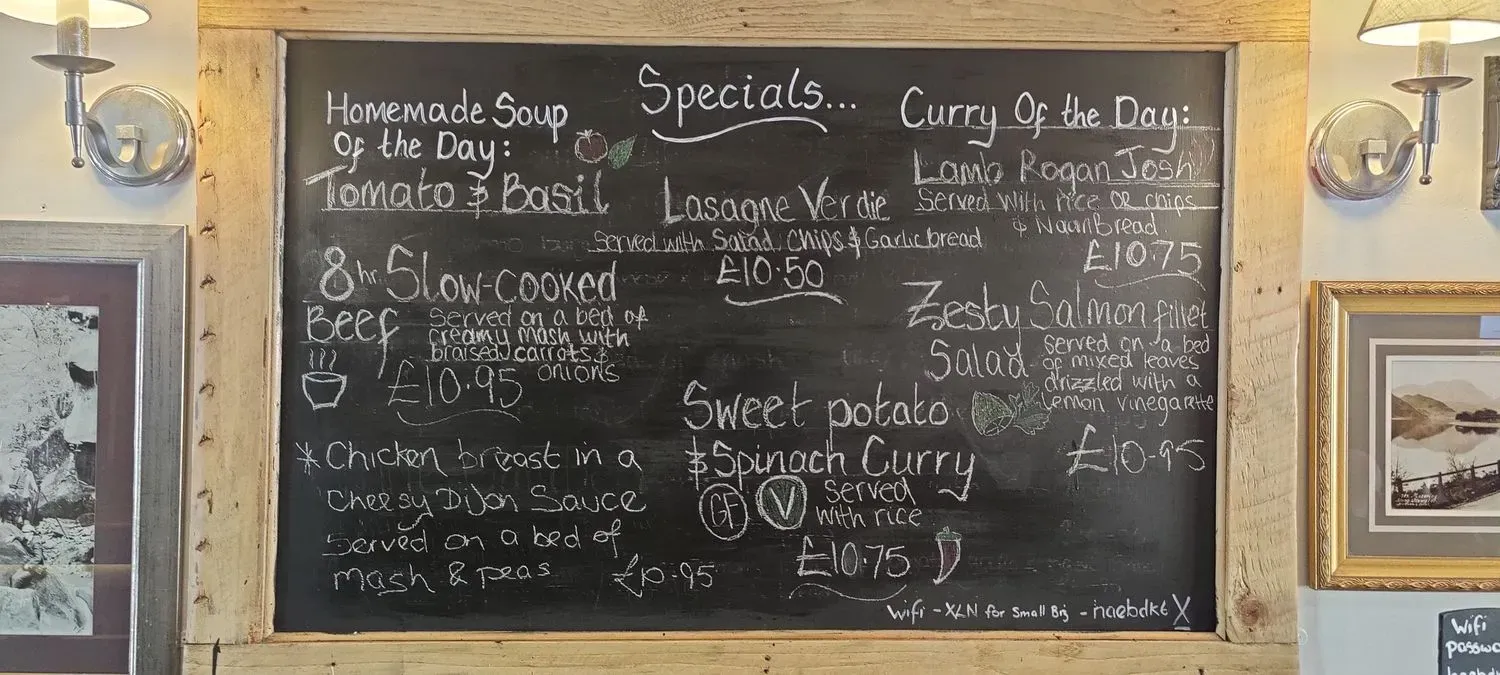 Specials...
Homemade Soup
Of the Day:
Tomato & Basil
8hr Slow-cooked
Beef
Served on a bed of
creamy mash with
braised carrots &
onions
£10.95
* Chicken breast in a
Cheesy Dijon Sauce
Served on a bed of
mash & peas £10.95
Lasagne Verdie
Served with Salad, Chips & Garlic bread
£10.50
Sweet potato
& Spinach Curry
GF V
served
with rice
£10.75
Curry Of the Day:
Lamb Rogan Josh
Served with rice OR chips
& Naan bread
£10.75
Zesty Salmon fillet
Salad
served on a bed
of mixed leaves
drizzled with a
lemon vinegarette
£10.95
Wifi - XLN for Small Biz - naebdkt X
Wifi